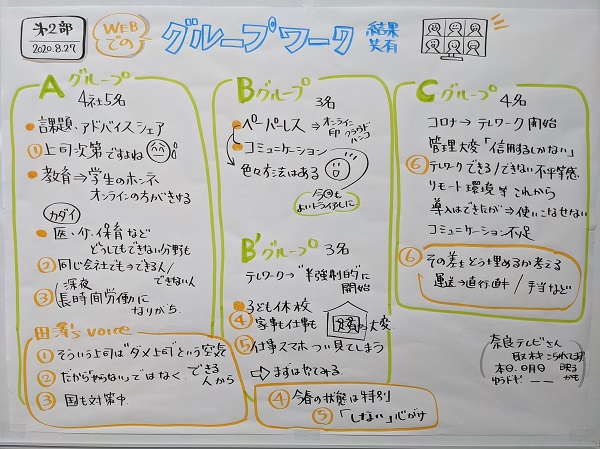 第2部
2020.8.27
WEB
での
グループワーク
結果
共有
Aグループ
4社5名
課題、アドバイスシェア
①上司次第ですよね
教育⇒学生のホンネ
オンラインの方がきける
カダイ
医、介、保育など
どうしてもできない分野も
②同じ会社でもできる人/
できない人
③深夜
長時間労働に
なりがち
田澤's voice
①そういう上司は"ダメ上司"という空気
②だからやらないではなく できる
人から
③国も対策中
Bグループ
3名
ペーパーレス⇒オンライン
印 クラウド
ハンコ
コミュニケーション
色々方法はある
よいトライアルに
B'グループ 3名
テレワーク→"半強制的"に
開始
子ども休校
④家事も仕事も
大変
⑤仕事スマホつい見てしまう
⇨まずはやってみる
④今春の状態は特別
⑤「しない」心がけ
Cグループ
4名
コロナ→テレワーク開始
管理大変「信用するしかない」
⑥テレワークできる/できない不平等感
リモート環境等これから
導入はできたが⇒使いこなせない
コミュニケーション不足
⑥その差をどう埋めるか考える
運送→直行直帰/手当など
奈良テレビさん
取材
本日